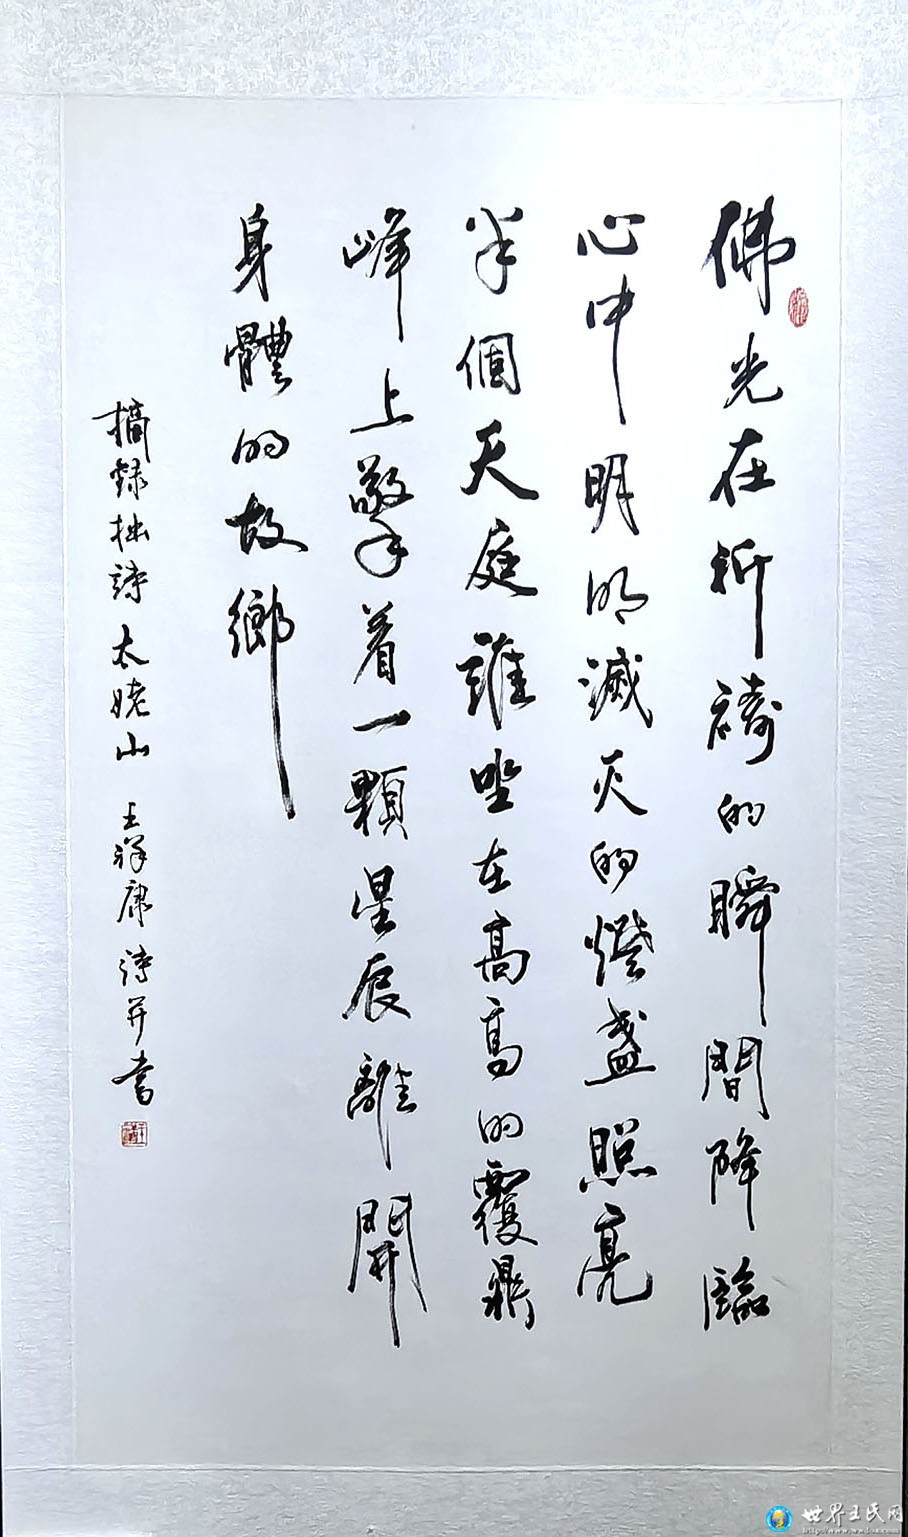 佛光在祈禱的瞬間降臨
心中明明滅灭的燈盞照亮
半個天庭誰坐在高高的覆鼎
峰上擎着一顆星辰離開
身體的故鄉
摘錄拙詩太姥山 王祥康詩并書
世界王氏网